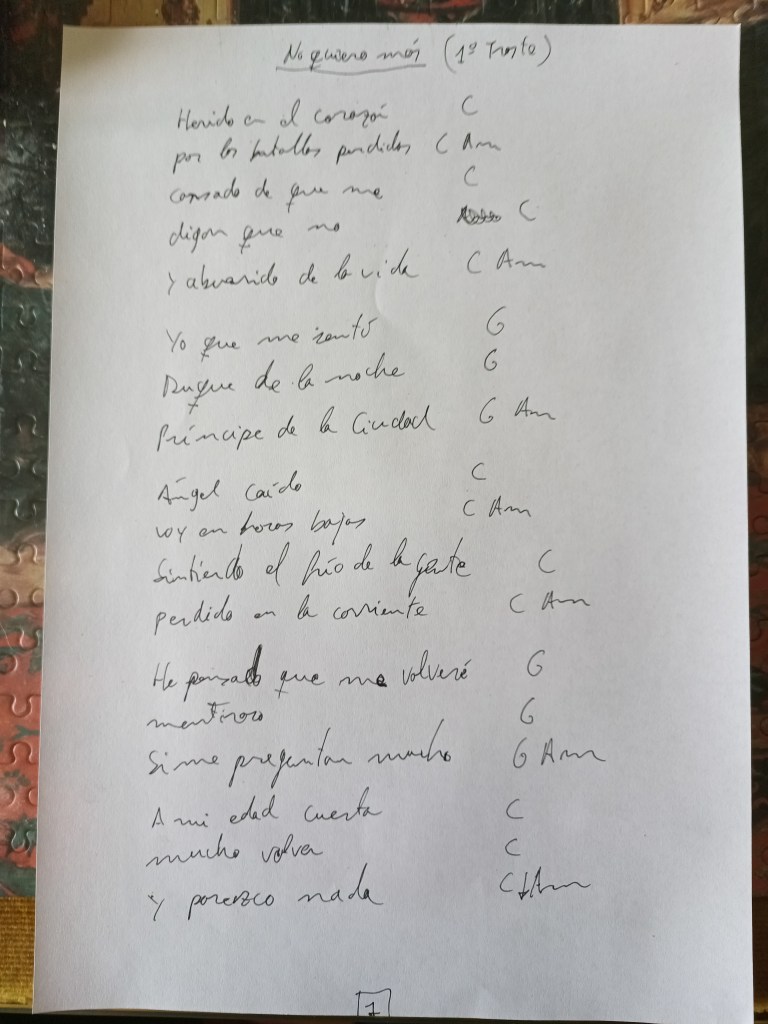 No quiero más (1º Traste)
Herido en el corazón C
por las batallas perdidas C Am
cansado de que me C
digan que no C
y aburrido de la vida C Am
Yo que me sentó G
Duque de la noche G
Príncipe de la Ciudad G Am
Ángel caído C
voy en horas bajas C Am
Sintiendo el frío de la gente C
perdido en la corriente C Am
He pensado que me volveré G
mentiroso G
Si me preguntan mucho G Am
A mi edad cuesta C
mucho volver C
y parezco nada C Am
1